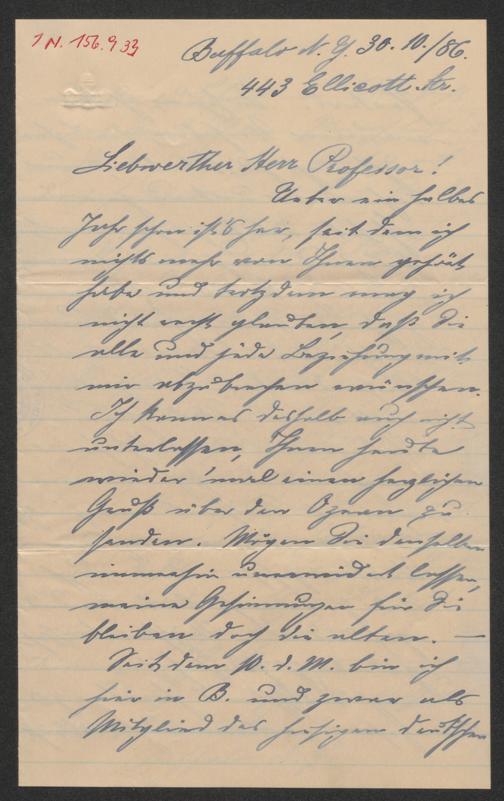 I N. 156.933
Buffalo N. Y. 30. 10./86.
443 Ellicott Str.
Liebwerther Herr Professor!
Ueber ein halbes
Jahr schon ist's her, seit dem ich
nichts mehr von Ihnen gehört
habe und trotzdem mag ich
nicht recht glauben, daß Sie
alle und jede Beziehung mit
mir abzubrechen wünschen.
Ich kann es deshalb auch nicht
unterlassen, Ihnen heute
wieder 'mal einen herzlichen
Gruß über den Ozean zu
senden. Mögen Sie denselben
immerhin unerwidert lassen,
meine Gesinnungen für Sie
bleiben doch die alten. —
Seit dem d. M. bin ich
hier in B. und zwar als
Mitglied des hiesigen deutschen